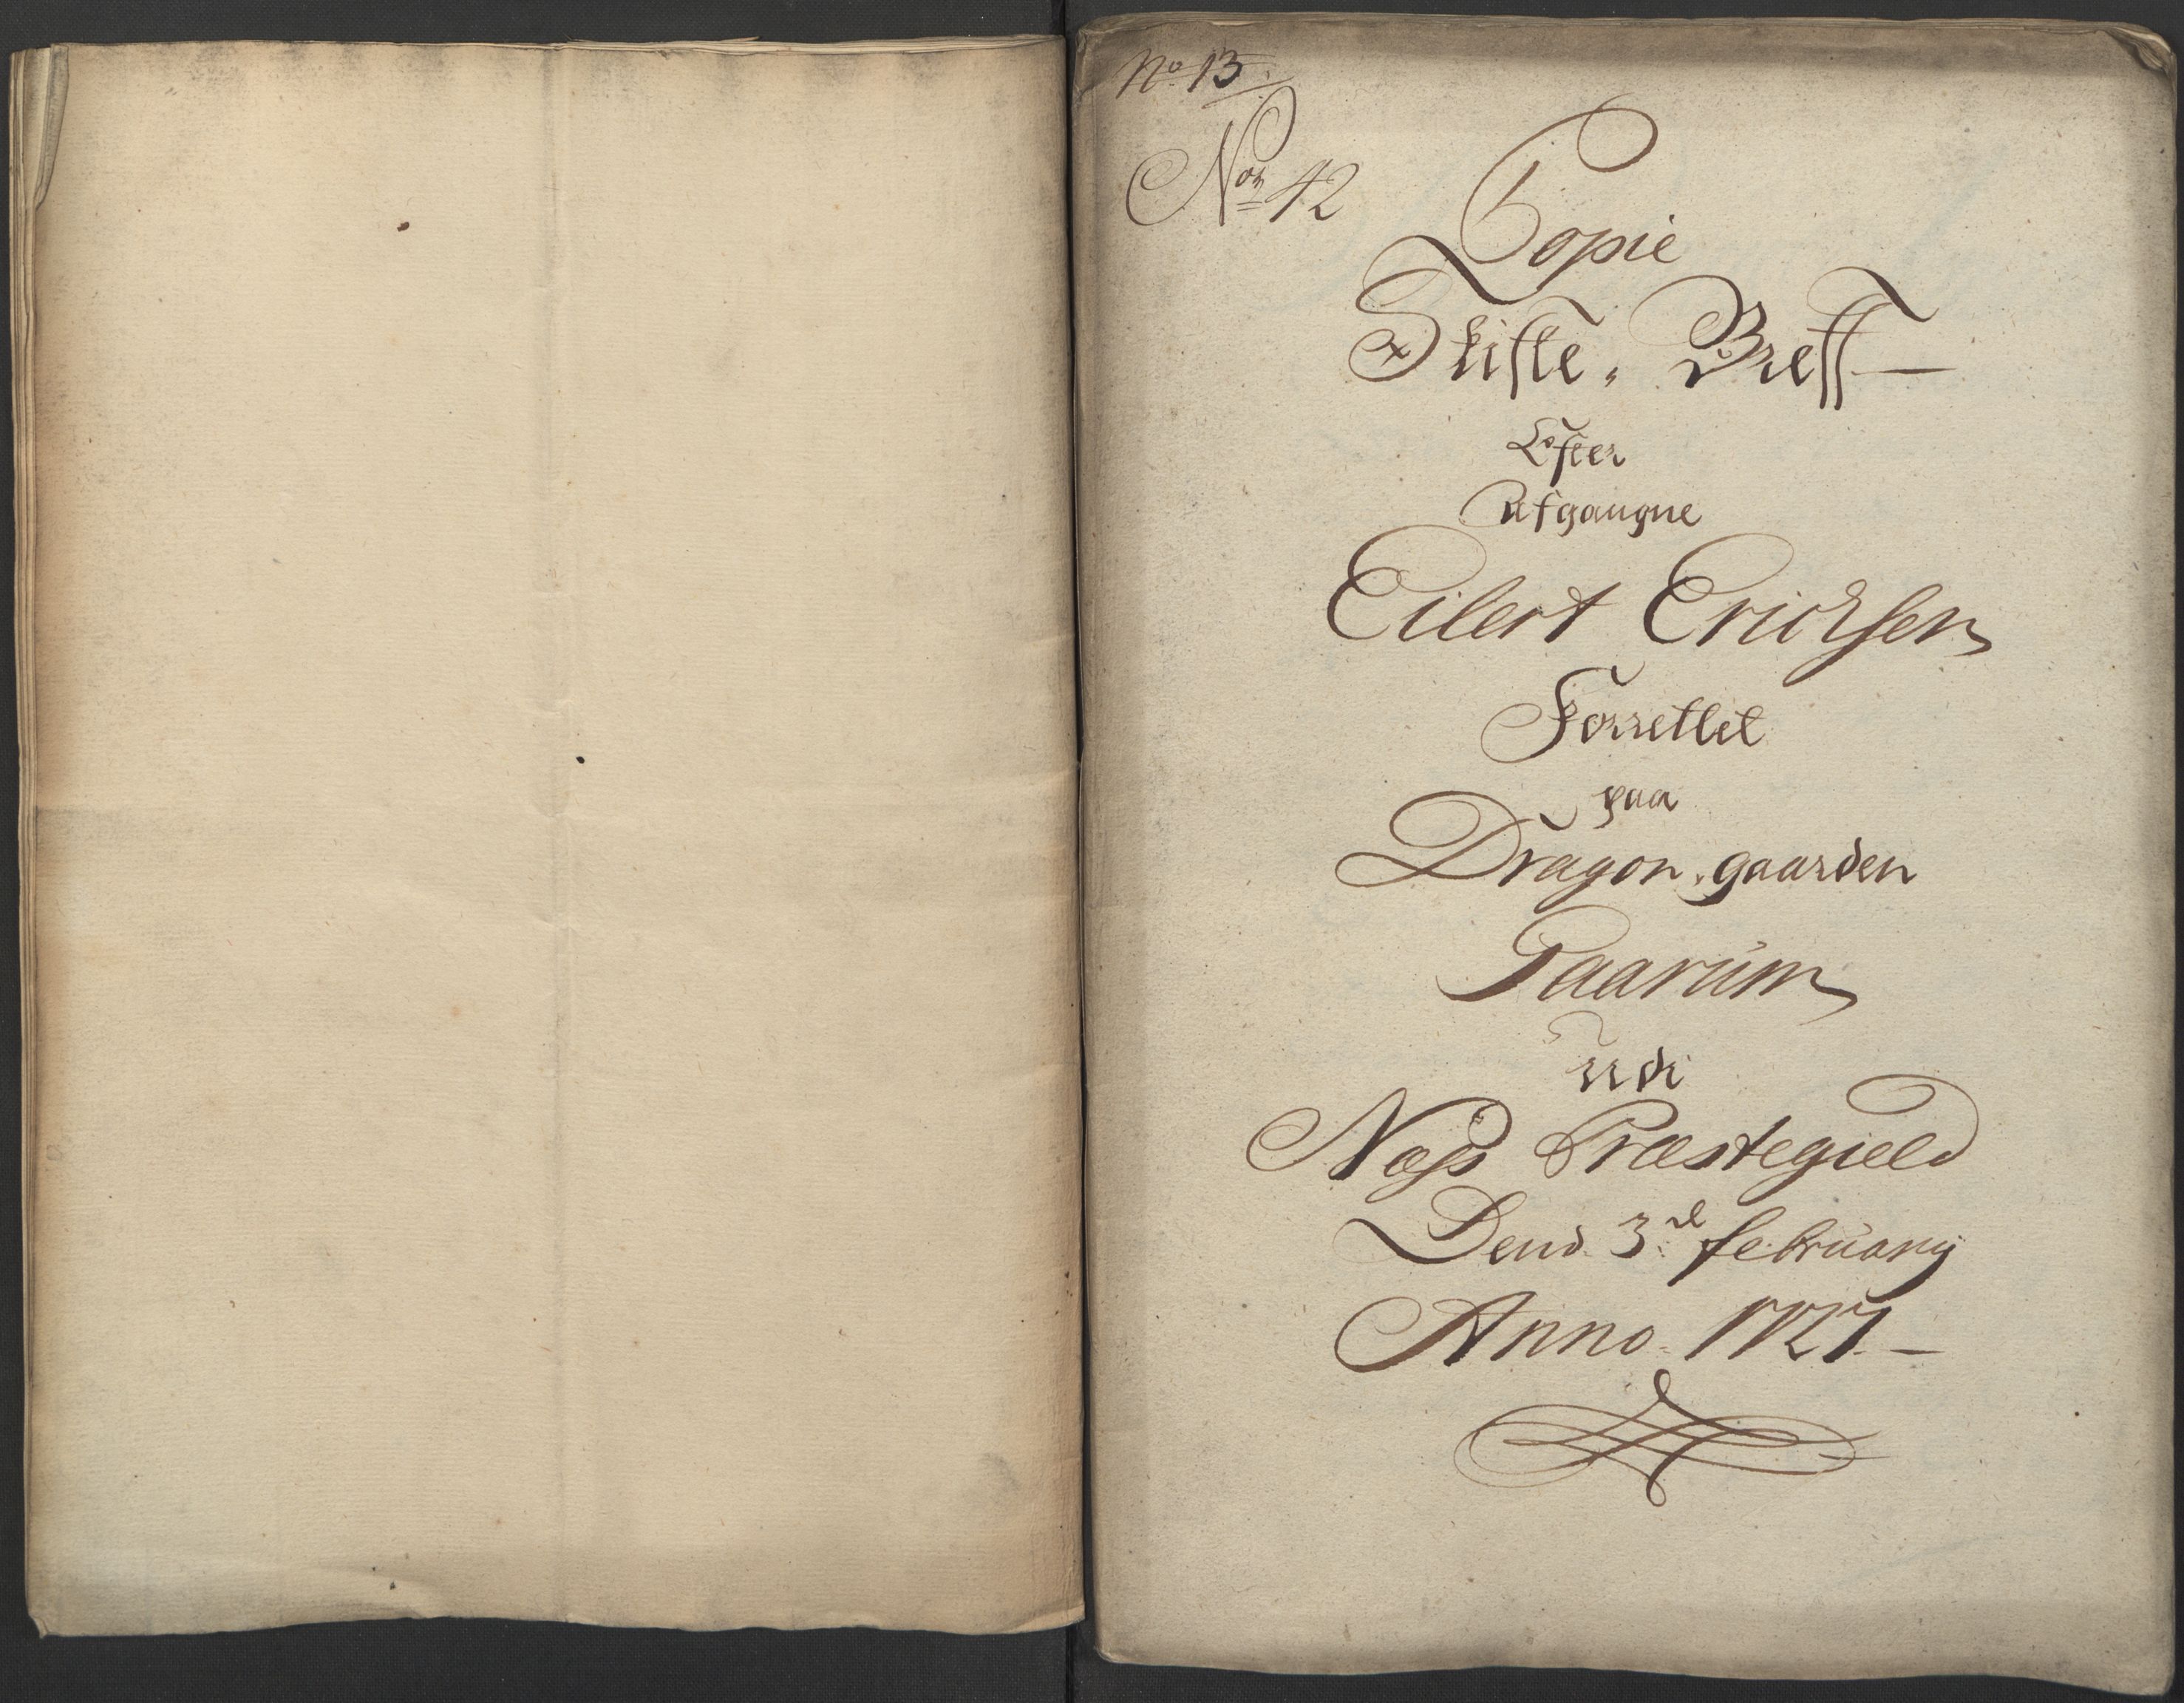 No 13.
No 42
Copie
Skifte, Breff
Efter
Afgangne
Eilert Erichsen
Forrettet
paa
Dragon, gaarden
Paarum
udi
Næss Præstegield
Dend 3de february
Anno 1727